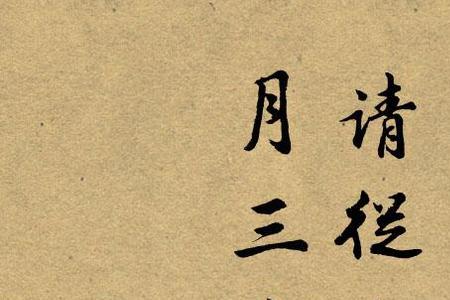 请從
月三